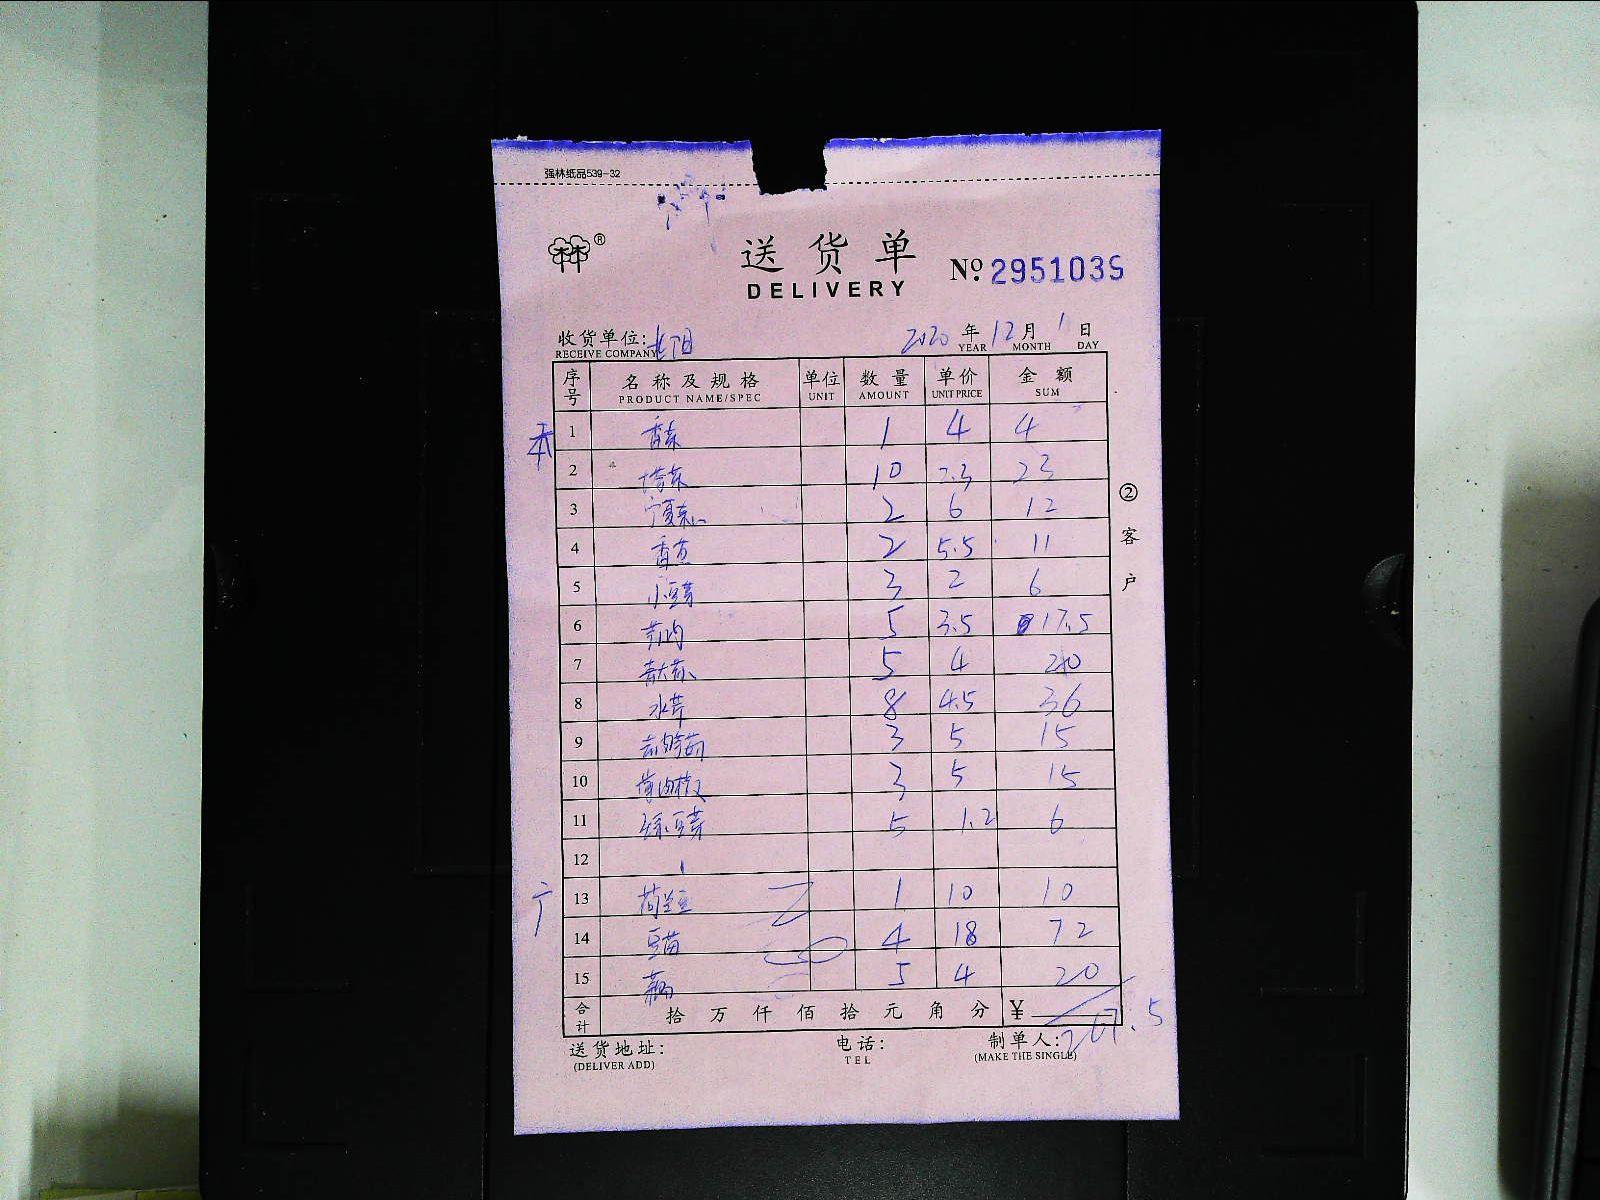 强林纸品539-32
林林®
送货单
DELIVERY
№ 2951039
收货单位:
2020年12月1日
RECEIVE COMPANY YEAR MONTH DAY
序号 名称及规格 单位 数量 单价 金额
PRODUCT NAME/SPEC UNIT AMOUNT UNIT PRICE SUM
本 1 香菜 1 4 4
2 塔菜 10 2.3 23
3 宁夏菜心 2 6 12
4 香芹 2 5.5 11
5 小豆芽 3 2 6
6 5 3.5 17.5
7 5 4 20
8 水芹 8 4.5 36
9 3 5 15
10 3 5 15
11 绿豆芽 5 1.2 6
12
广 13 荷兰豆 1 10 10
14 豆苗 4 18 72
15 5 4 20
合计 拾万仟佰拾元角分 ¥ 267.5
②客户
送货地址: 电话: 制单人:
(DELIVER ADD) TEL (MAKE THE SINGLE)